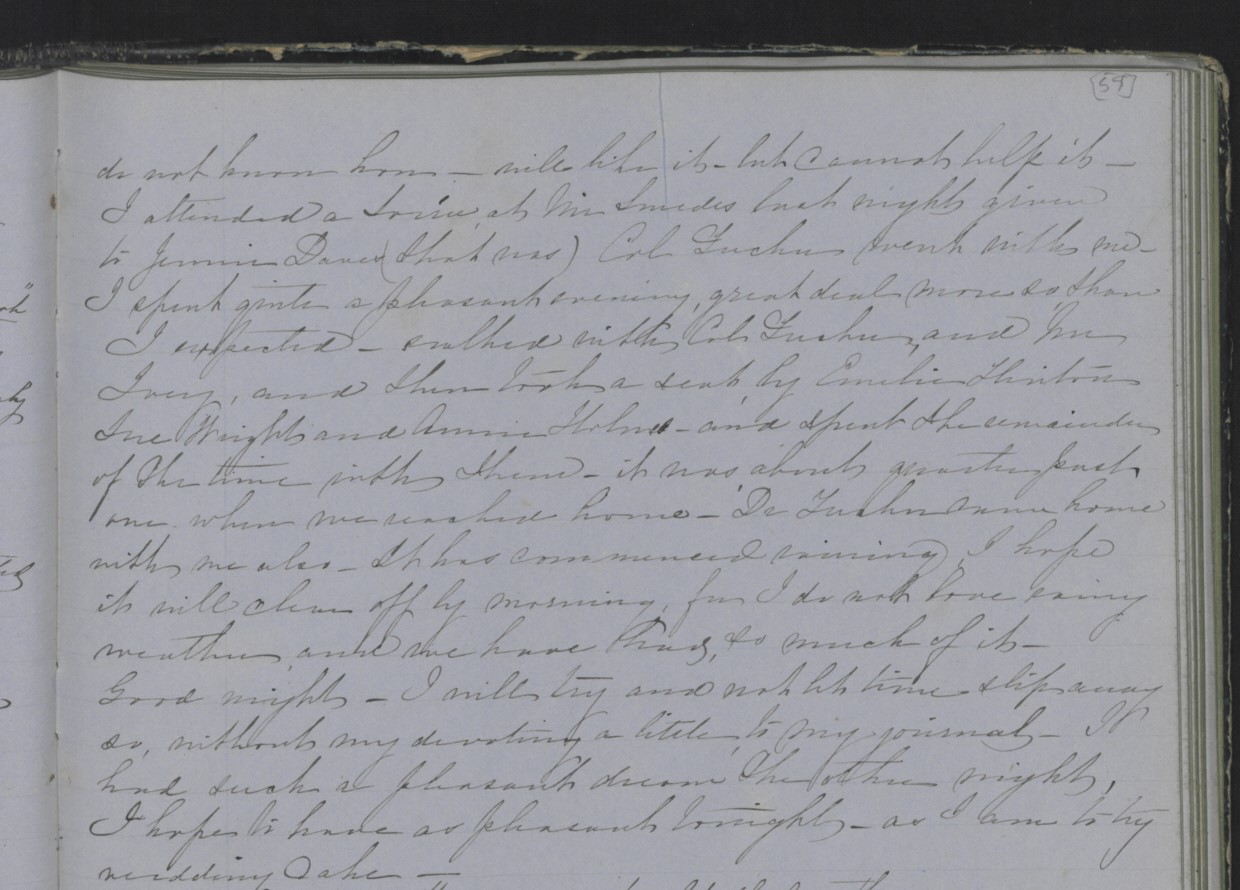 [59]
do not know how — will like it - but cannot help it —
I attended a Soiree, at Mr Smedes last night given
to Jennie Daves (that was) Col Tucker went with me -
I spent quite a pleasant evening, great deal more so, than
I expected - walked with Col Tucker, and Mr
Ivey, and then took a seat, by Emelie Hinton
Sue Wright and Annie Holmes - and spent the remainder
of the time with them - it was about quarter past
one when we reached home - Dr Tucker came home
with me also - It has commenced raining, I hope
it will clear off by morning, for I do not love rainy
weather, and we have had, so much of it -
Good night - I will try and not let time slip away
so, without my devoting a little, to my journal - I
had such a pleasant dream the other night,
I hope to have as pleasant tonight - as I am to try
wedding cake —